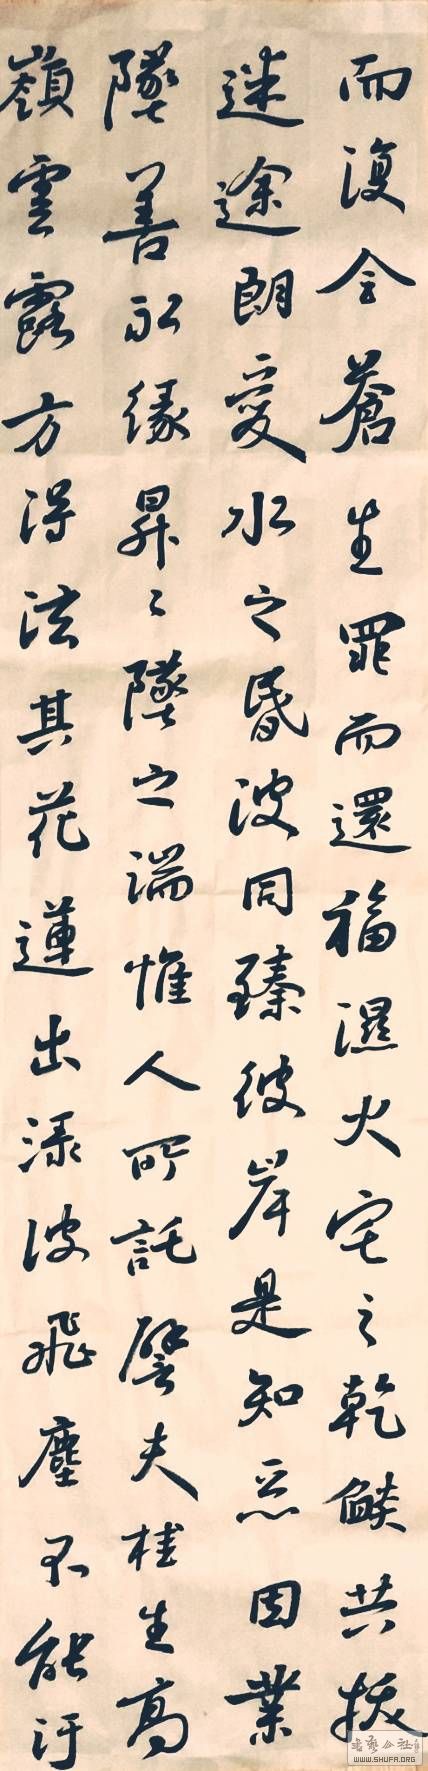 而復令蒼生罪而還福濕火宅之乾燄共拔
迷途朗愛水之昏波同臻彼岸是知惡因業
墜善永緣昇〻墜之端惟人所託譬夫桂生高
嶺雲露方得泫其花蓮出淥波飛塵不能汙
WWW.SHUFA.ORG